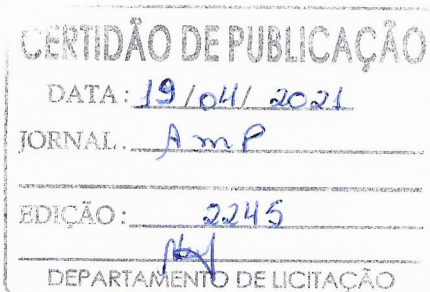 CERTIDÃO DE PUBLICAÇÃO
DATA: 19/04/2021
JORNAL: AmP
EDIÇÃO: 2245
DEPARTAMENTO DE LICITAÇÃO